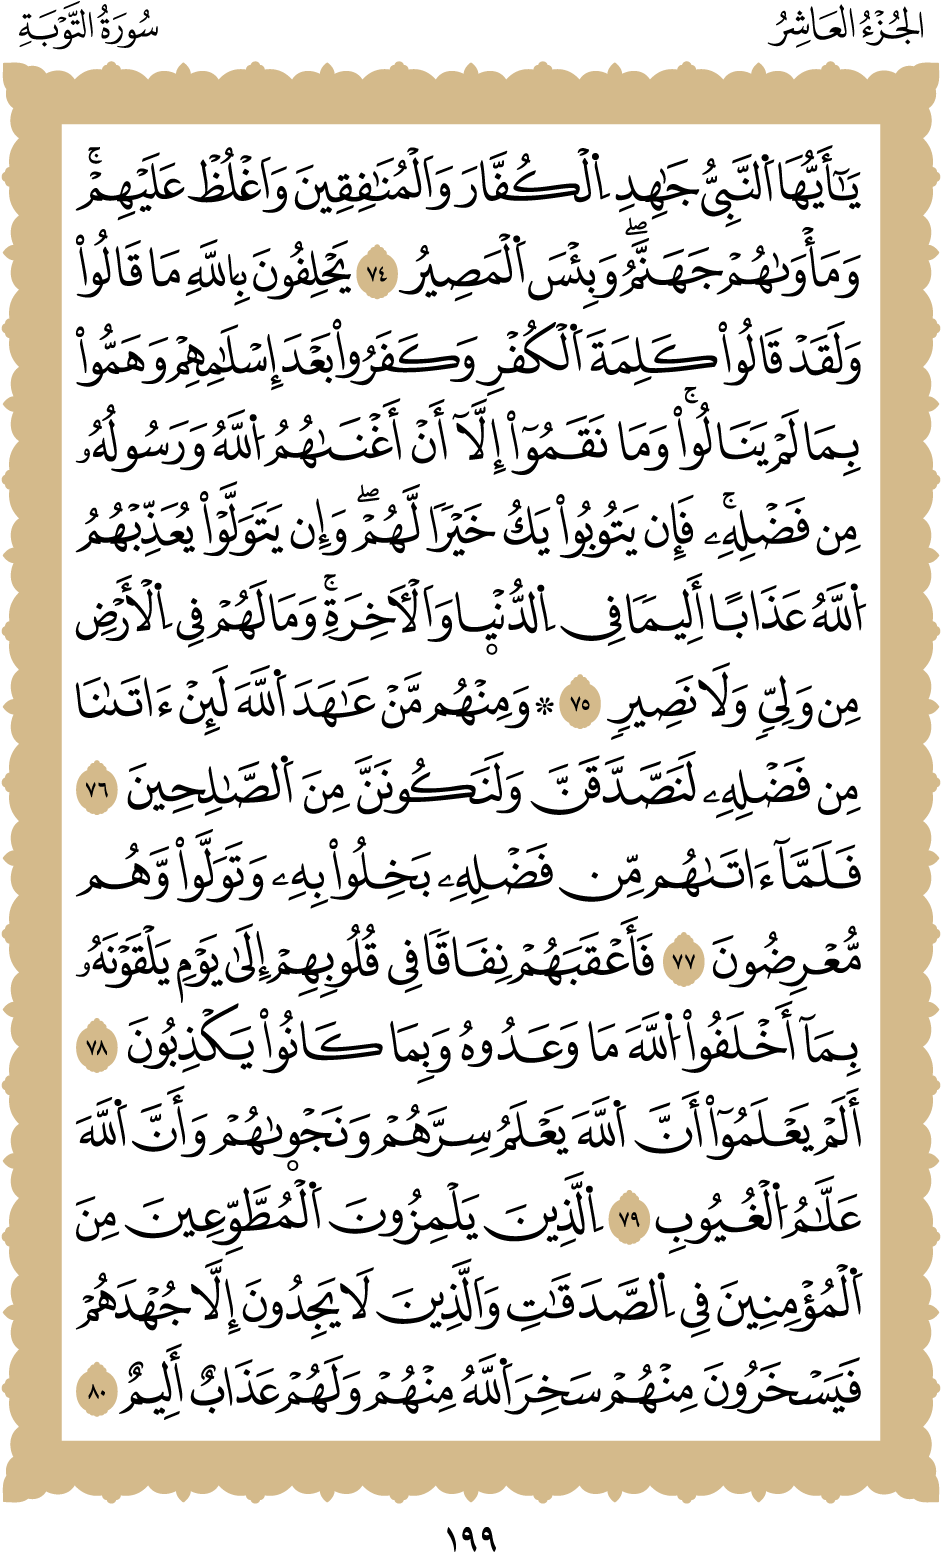 الجُزْءُ العَاشِرُ
سُورَةُ التَّوْبَةِ
يَٰٓأَيُّهَا اَ۬لنَّبِيُّ جَٰهِدِ اِ۬لْكُفَّارَ وَالْمُنَٰفِقِينَ وَاغْلُظْ عَلَيْهِمْۚ
وَمَأْوَىٰهُمْ جَهَنَّمُۖ وَبِئْسَ اَ۬لْمَصِيرُ ٧٤ يَحْلِفُونَ بِاللَّهِ مَا قَالُواْ
وَلَقَدْ قَالُواْ كَلِمَةَ اَ۬لْكُفْرِ وَكَفَرُواْ بَعْدَ إِسْلَٰمِهِمْ وَهَمُّواْ
بِمَا لَمْ يَنَالُواْۚ وَمَا نَقَمُوٓاْ إِلَّآ أَنْ أَغْنَىٰهُمُ اُ۬للَّهُ وَرَسُولُهُۥ
مِن فَضْلِهِۦۚ فَإِن يَتُوبُواْ يَكُ خَيْرٗا لَّهُمْۖ وَإِن يَتَوَلَّوْاْ يُعَذِّبْهُمُ
اُ۬للَّهُ عَذَابًا أَلِيمٗا فِي اِ۬لدُّنْي۪ا وَالْأٓخِرَةِۚ وَمَا لَهُمْ فِي اِ۬لْأَرْضِ
مِن وَلِيّٖ وَلَا نَصِيرٖ ٧٥ ۞ وَمِنْهُم مَّنْ عَٰهَدَ اَ۬للَّهَ لَئِنْ ءَاتَىٰنَا
مِن فَضْلِهِۦ لَنَصَّدَّقَنَّ وَلَنَكُونَنَّ مِنَ اَ۬لصَّٰلِحِينَ ٧٦
فَلَمَّآ ءَاتَىٰهُم مِّن فَضْلِهِۦ بَخِلُواْ بِهِۦ وَتَوَلَّواْ وَّهُم
مُّعْرِضُونَ ٧٧ فَأَعْقَبَهُمْ نِفَاقٗا فِي قُلُوبِهِمْ إِلَىٰ يَوْمِ يَلْقَوْنَهُۥ
بِمَآ أَخْلَفُواْ اُ۬للَّهَ مَا وَعَدُوهُ وَبِمَا كَانُواْ يَكْذِبُونَ ٧٨
أَلَمْ يَعْلَمُوٓاْ أَنَّ اَ۬للَّهَ يَعْلَمُ سِرَّهُمْ وَنَجْو۪ىٰهُمْ وَأَنَّ اَ۬للَّهَ
عَلَّٰمُ اُ۬لْغُيُوبِ ٧٩ اِ۬لَّذِينَ يَلْمِزُونَ اَ۬لْمُطَّوِّعِينَ مِنَ
اَ۬لْمُؤْمِنِينَ فِي اِ۬لصَّدَقَٰتِ وَالَّذِينَ لَا يَجِدُونَ إِلَّا جُهْدَهُمْ
فَيَسْخَرُونَ مِنْهُمْ سَخِرَ اَ۬للَّهُ مِنْهُمْ وَلَهُمْ عَذَابٌ أَلِيمٌ ٨٠
١٩٩